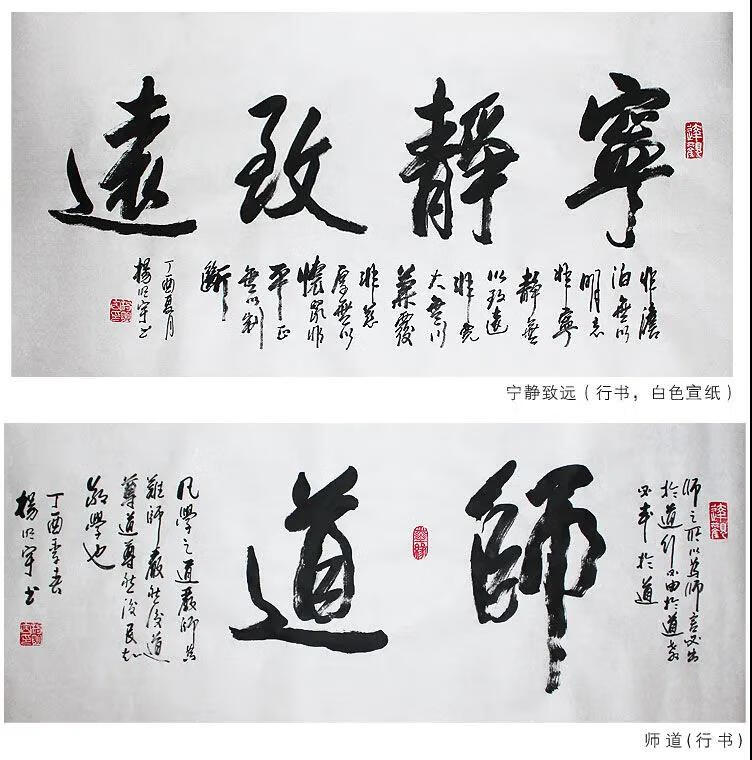 寧靜致遠
非澹
泊無以
明志
非寧
靜無
以致遠
非寬
大無以
兼覆
非慈
厚無以
懷眾非
平正
無以制
斷
丁酉夏月
楊宇书
宁静致远（行书，白色宣纸）
師之所以為師言必出
於道行必由於道教
必本於道
師道
凡學之道嚴師為
難師嚴然後道
尊道尊然後民知
敬學也
丁酉季春
楊宇书
师道(行书)